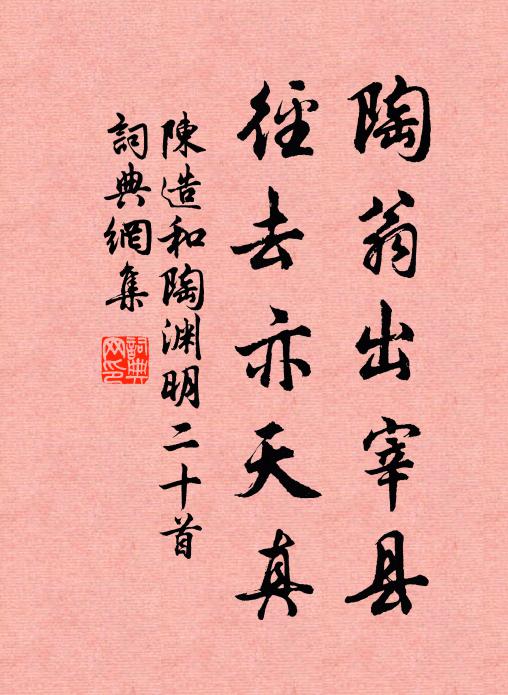 陶翁出宰县
径去亦天真
陳造和陶渊明二十首
詞典網集
詞典网印